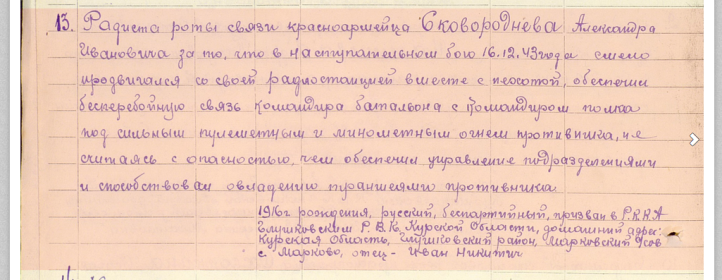 13. Радиста роты связи красноармейца Сковороднева Александра
Ивановича за то, что в наступательном бою 16.12.43 года смело
продвигался со своей радиостанцией вместе с пехотой, обеспечил
бесперебойную связь командира баталвона с командиром полка
под сильным пулеметным и минометным огнем противника, не
считаясь с опасностью, чем обеспечил управление подразделениями
и способствовал овладению траншеями противника
1916г рождения, русский, беспартийный, призван в Р.К.К.А
Глушковским Р.В.К. Курской Области, домашний адрес:
Курская Область, Глушковский район, Марковский с/сов
с. Марково, отец - Иван Никитич